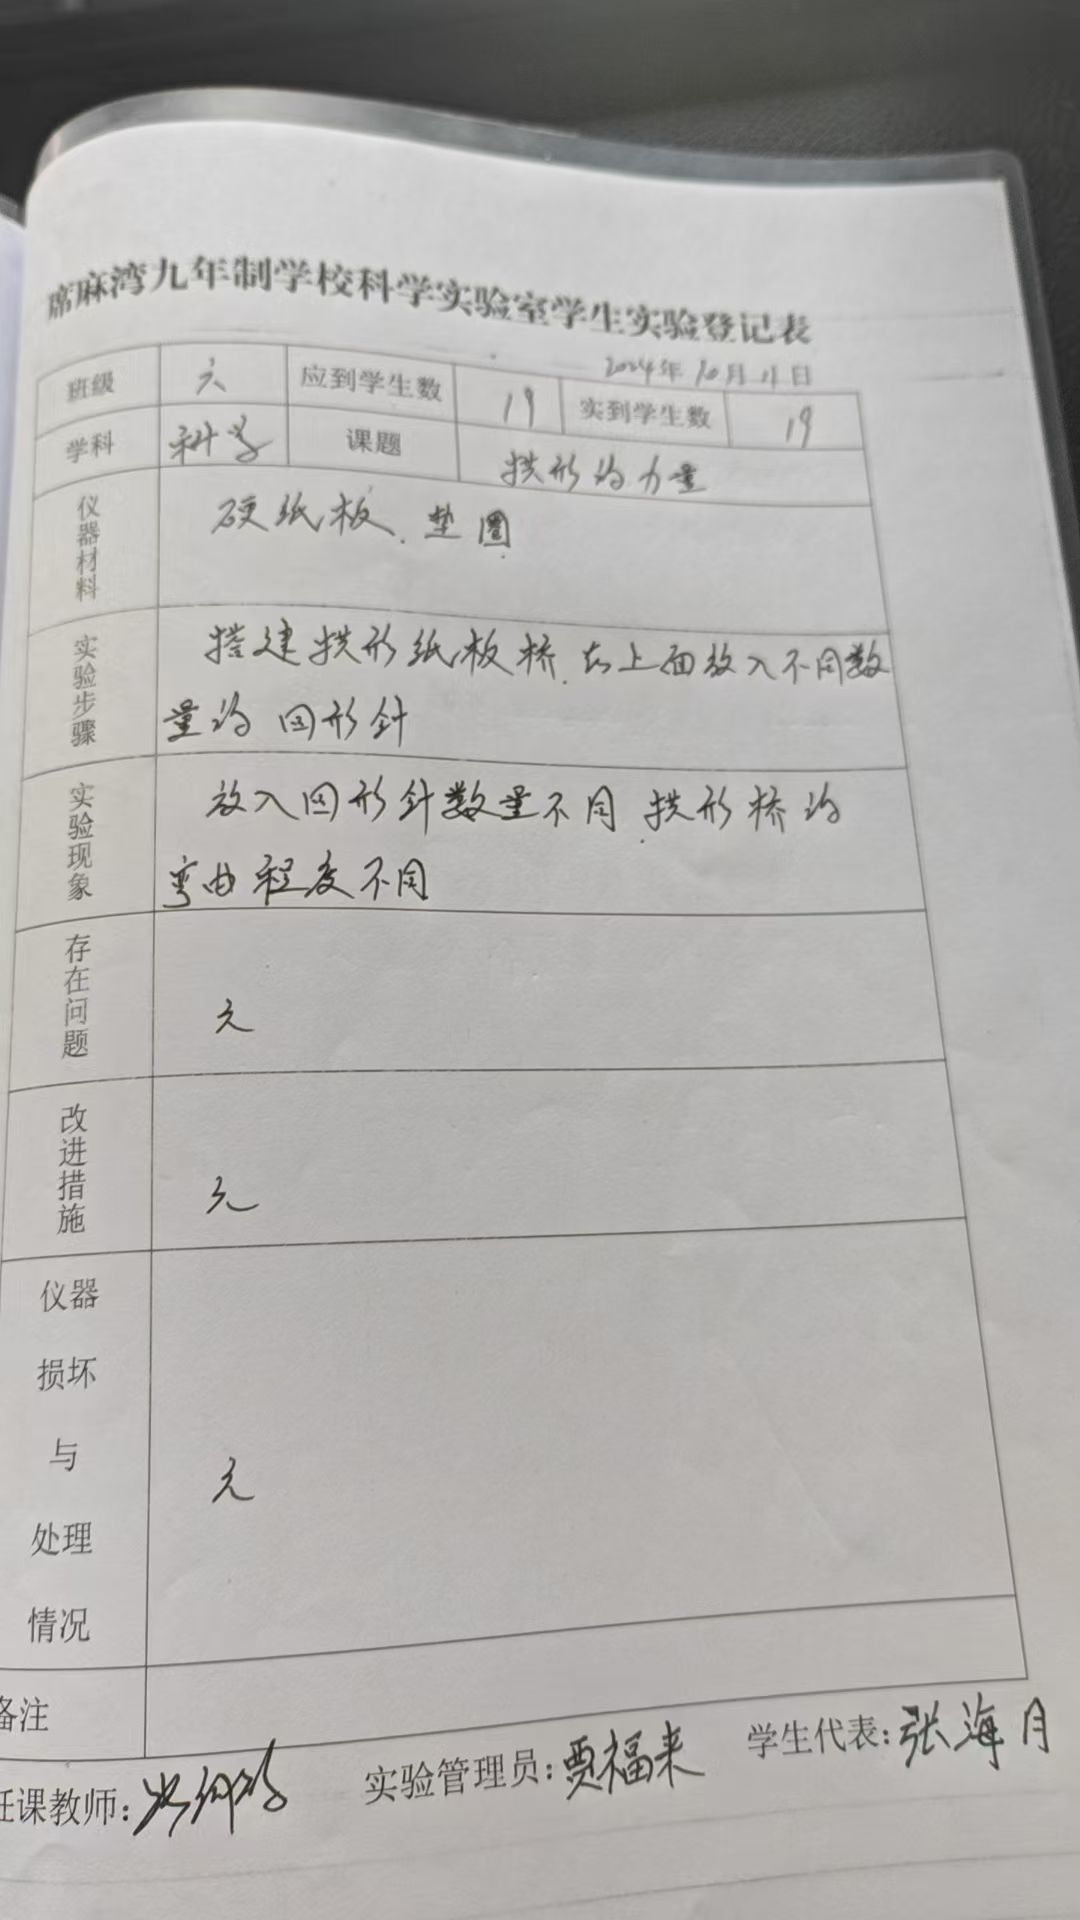 席麻湾九年制学校科学实验室学生实验登记表
2024年10月11日
班级 六 应到学生数 19 实到学生数 19
学科 科学 课题 拱形的力量
仪器材料 硬纸板、垫圈
实验步骤 搭建拱形纸板桥,在上面放入不同数
量的回形针
实验现象 放入回形针数量不同,拱形桥的
弯曲程度不同
存在问题 无
改进措施 无
仪器
损坏
与
处理
情况
无
备注
任课教师: 实验管理员:贾福来 学生代表:张海月